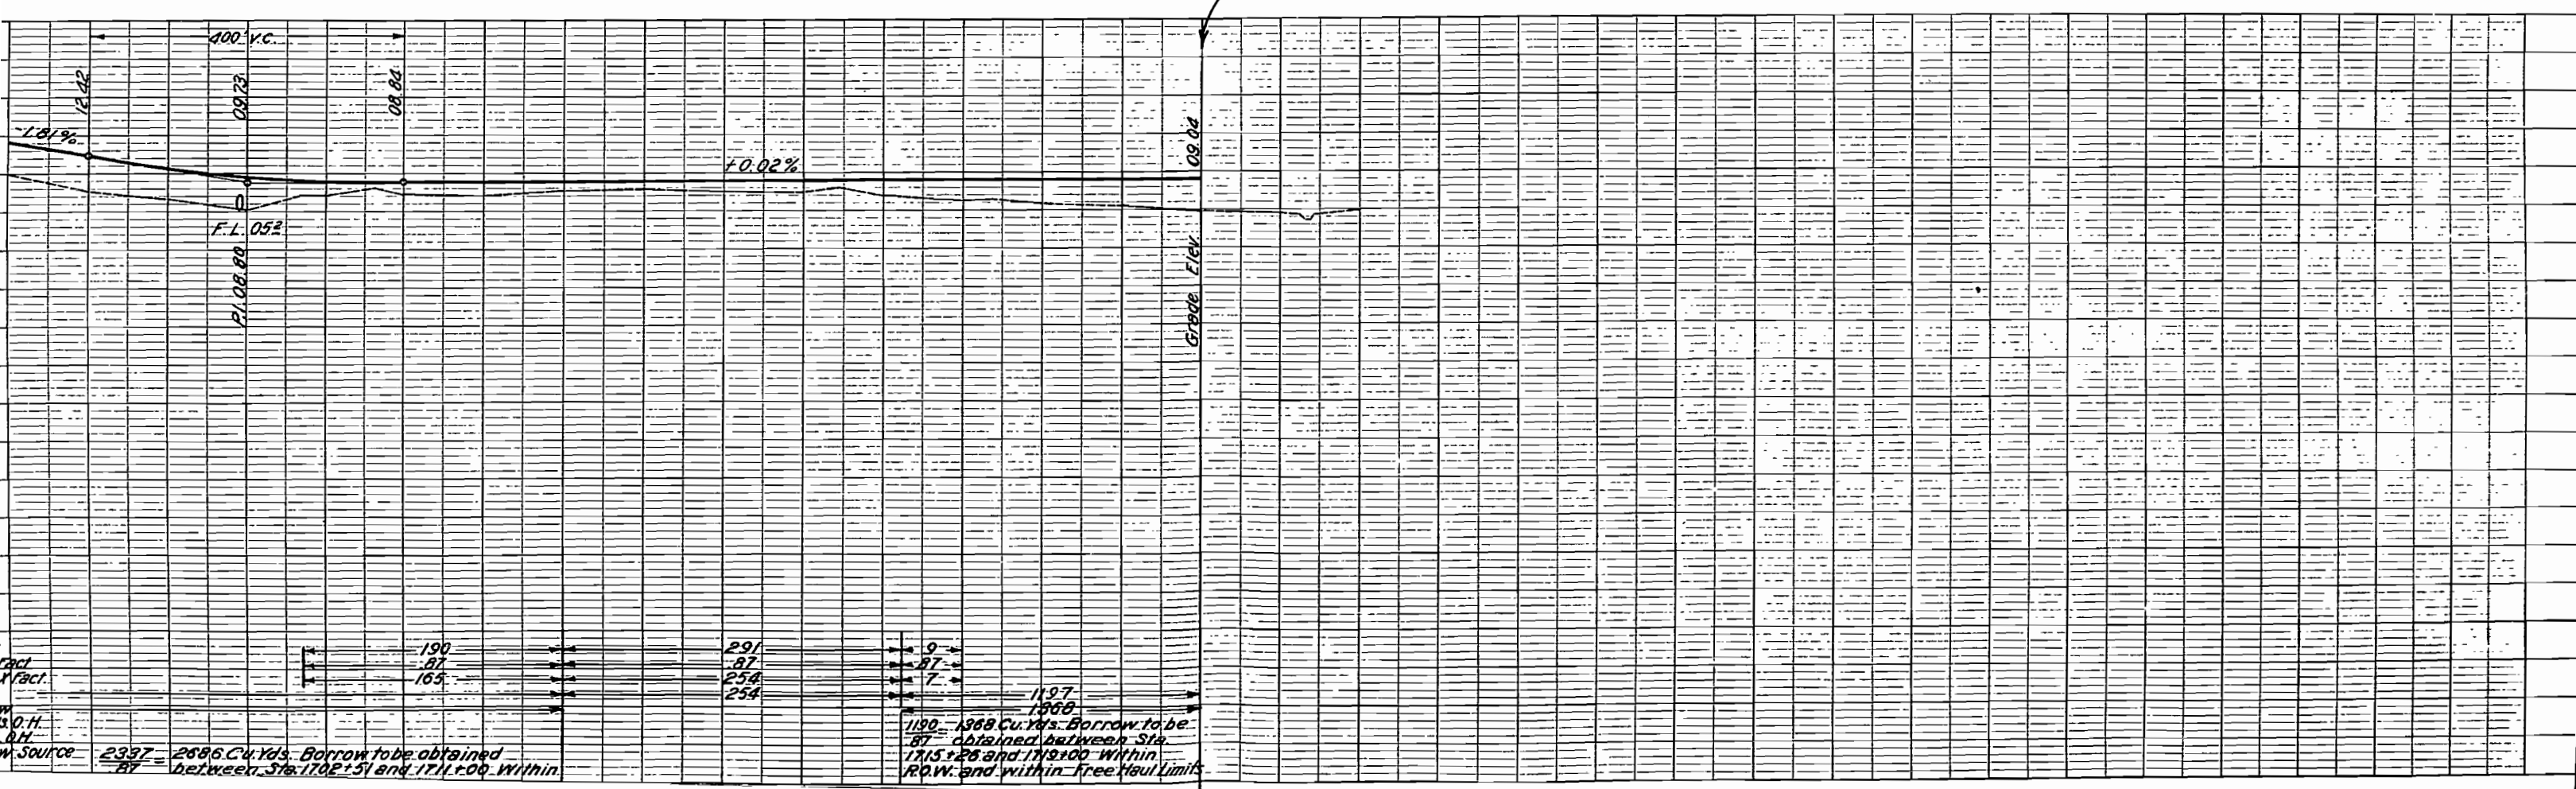 400' V.C.
12.42
09.73
08.84
-1.81%
+0.02%
09.04
Grade Elev.
F.L. 05²
P.I. 08.80
190
291
9
Fact
.87
.87
.87
x Fact.
165
254
7
254
1197
1368
O.H.
O.H.
Source
2337 = 2686 Cu. Yds. Borrow to be obtained
.87 between Sta. 1702+51 and 1711+00 Within
1190 = 1368 Cu. Yds. Borrow to be
.87 obtained between Sta.
1715+26 and 1719+00 Within
R.O.W. and within Free Haul Limits